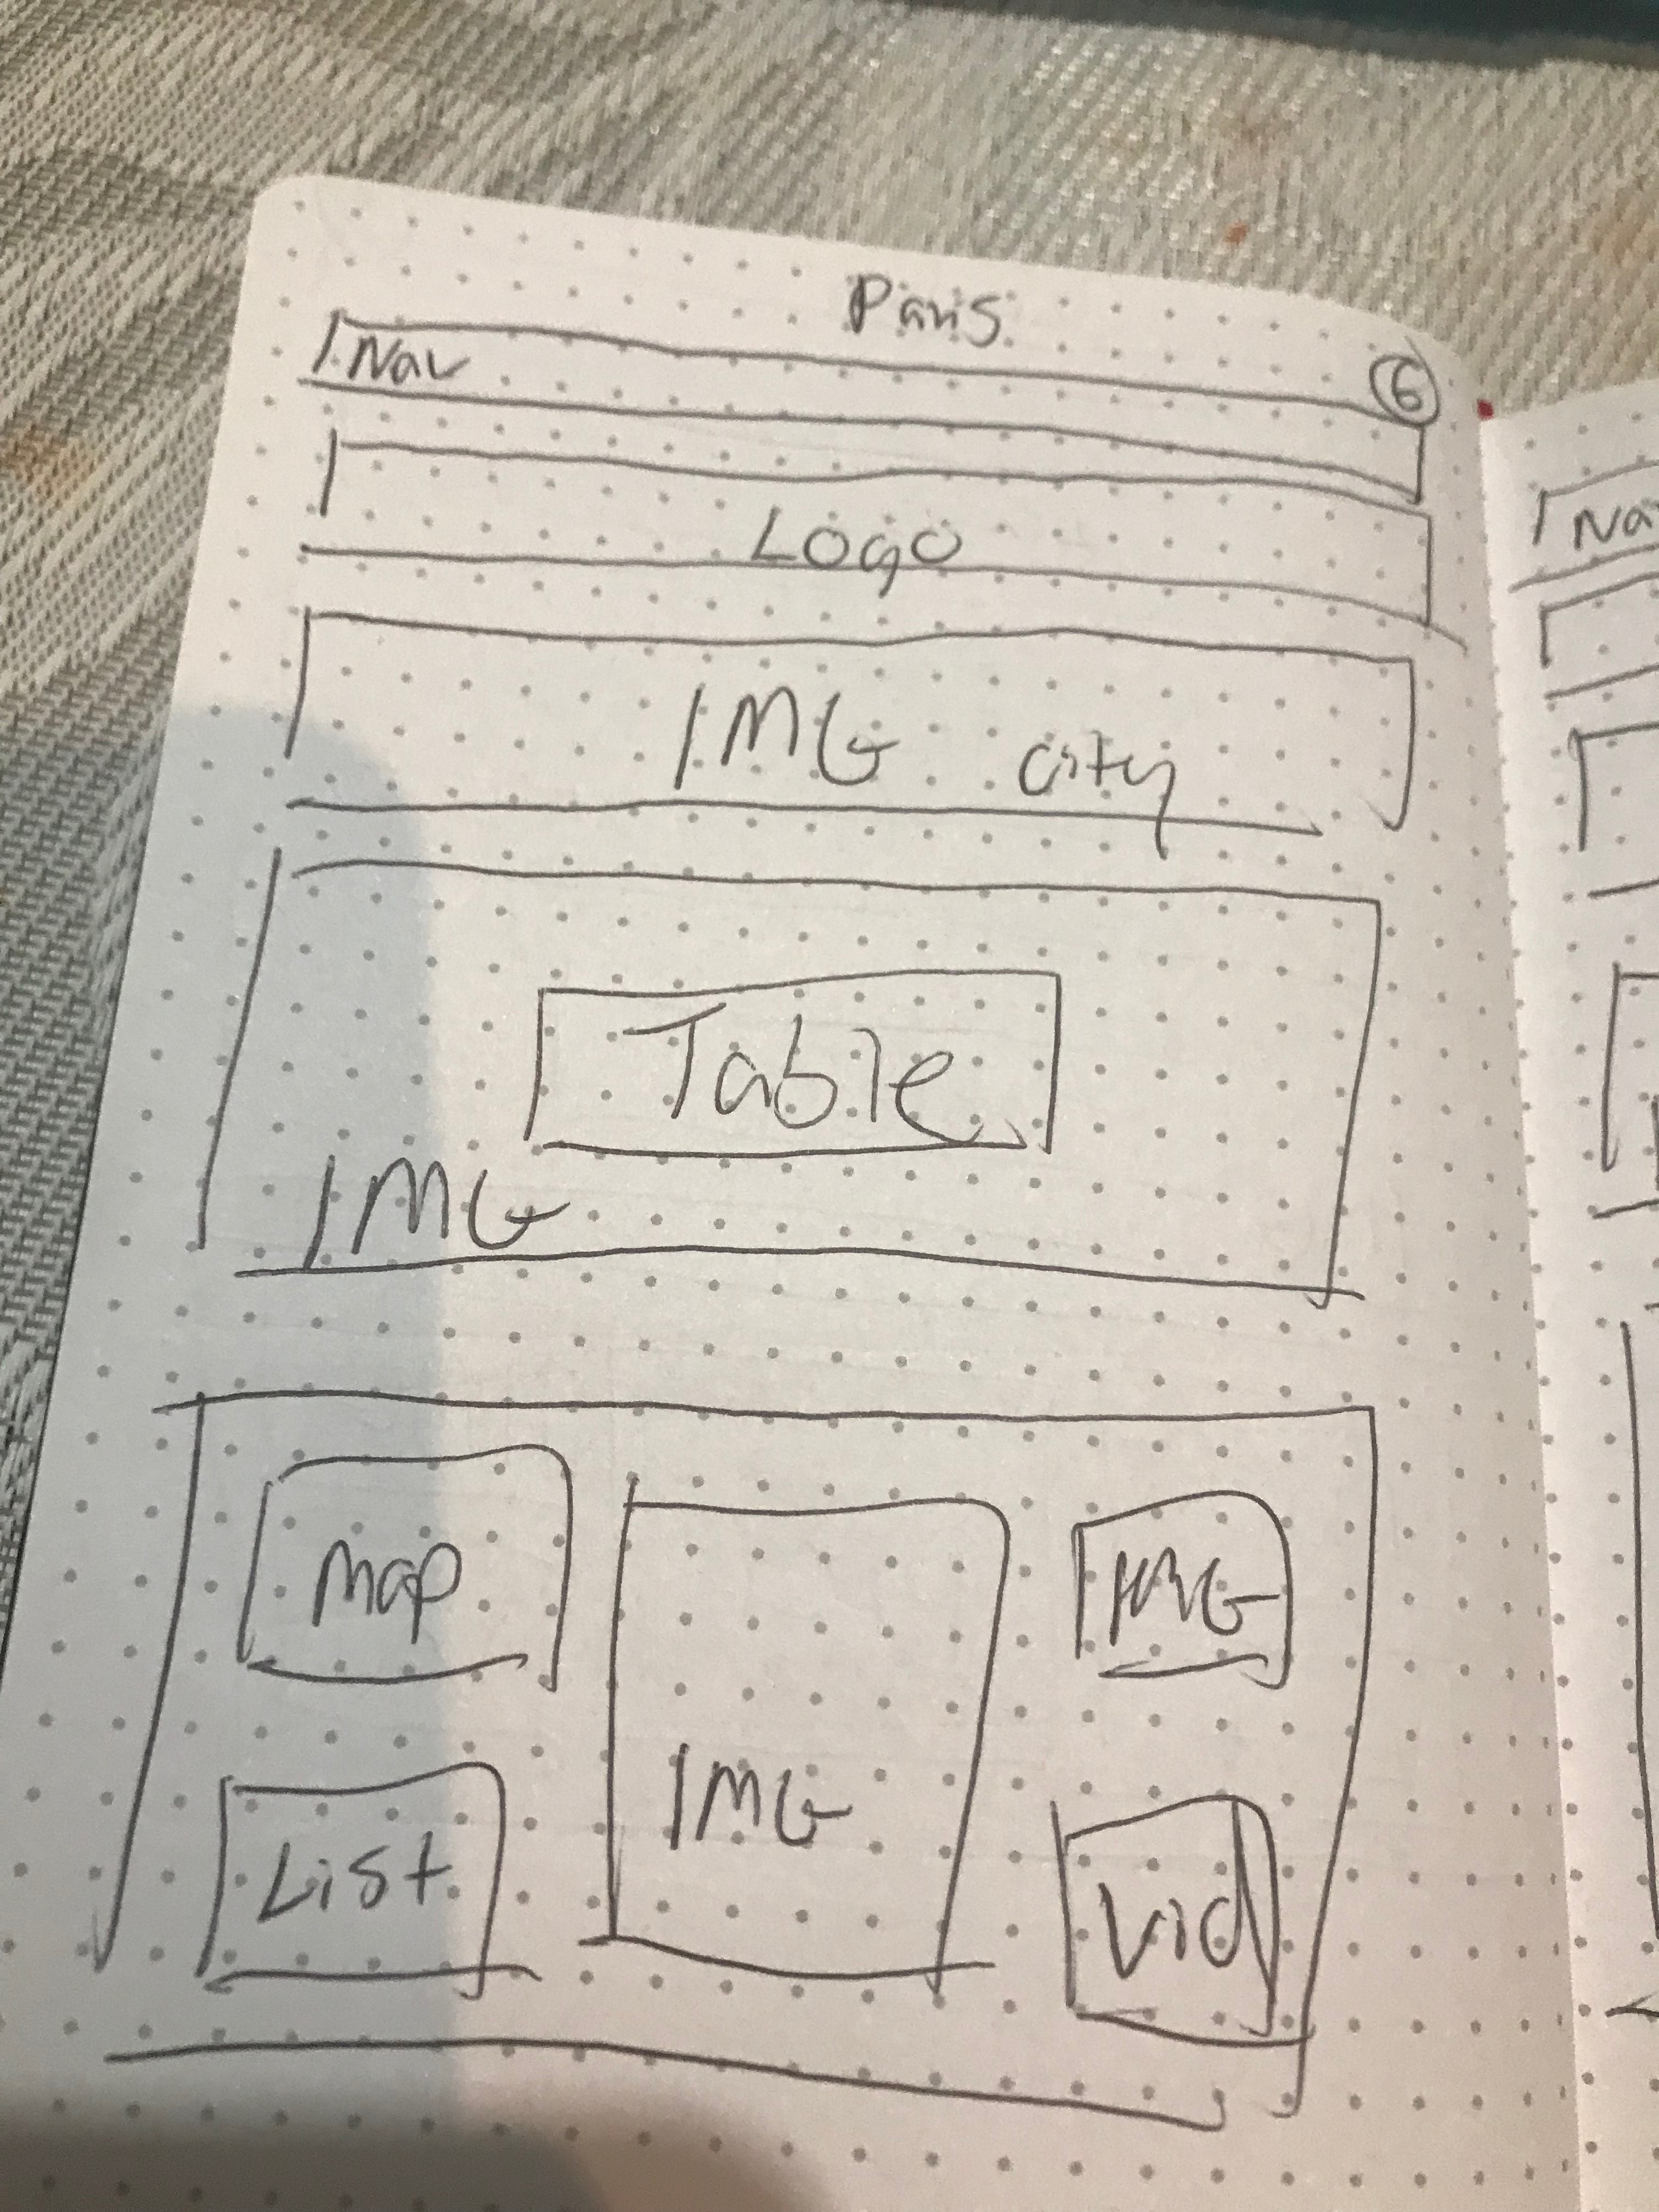 Paris
Nav
6
Logo
IMG city
Table
IMG
Map
IMG
IMG
List
Vid
Na